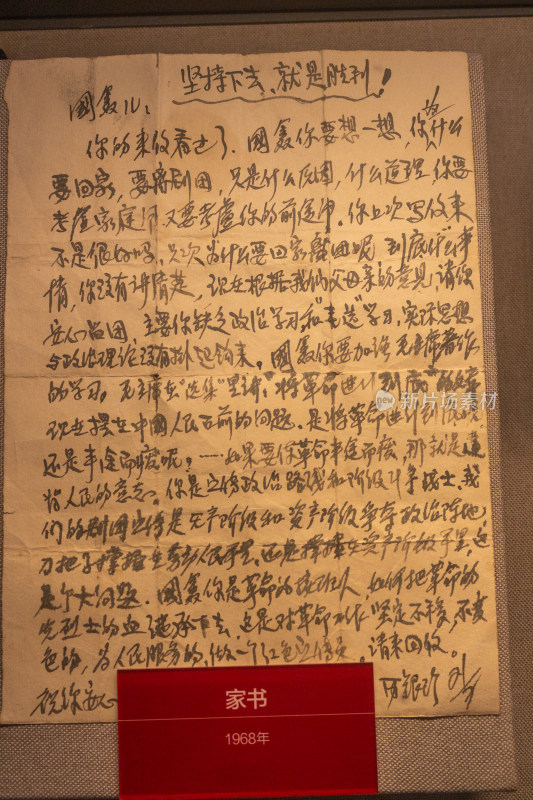 坚持下去、就是胜利！
國轰儿：
你的来收看过了．國轰你要想一想，你为什么
要回家，要离剧团，只是什么原因，什么道理，你要
考虑家庭又要考虑你的前途。你上次写收来
不是很好吗，只次为什么要回家离团呢 到底什么事
情，你没有讲清楚，现在根据我们父母亲的意見，请你
安心留团，主要你缺乏政治学习，和"毛选"学习，实际思想
与政治理论没有掛起钩来。國轰你要加强毛主席著作
的学习。毛主席在"选集"里讲，"将革命进行到底"的
现在摆在中國人民面前的问题，是将革命进行到底呢
还是半途而废呢？……如果要使革命半途而废，那就是違
背人民的意志。你是宣传政治路线和阶级斗争战士，我
们的剧团宣传是无产阶级和资产阶级争夺政治阵地，
刀把子掌握在劳动人民手里，还是掌握在资产阶级手里，这
是个大问题．國轰你是革命的接班人，如何把革命的
先烈士的血 继承下去，也是对革命工作坚定不移，不变
色的，为人民服务的，做一个红色宣传员，请来回收。
祝你安心
家书
1968年
摄图网